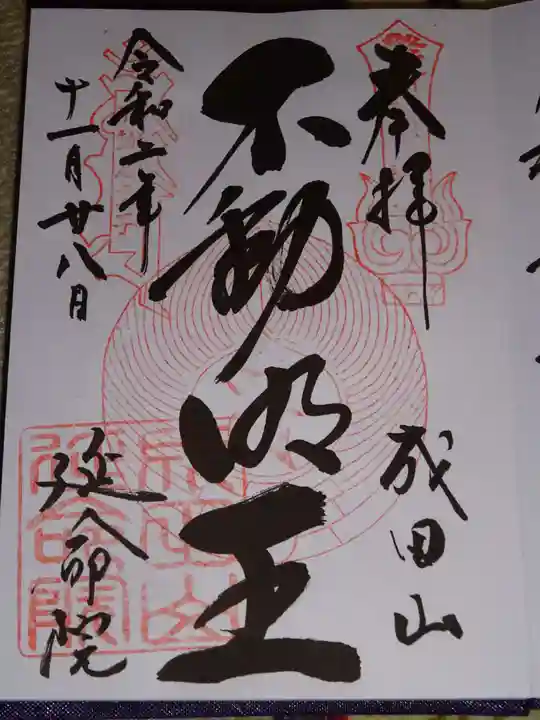 奉拝
成田山
不動明王
令和二年
十一月廿八日
延命院